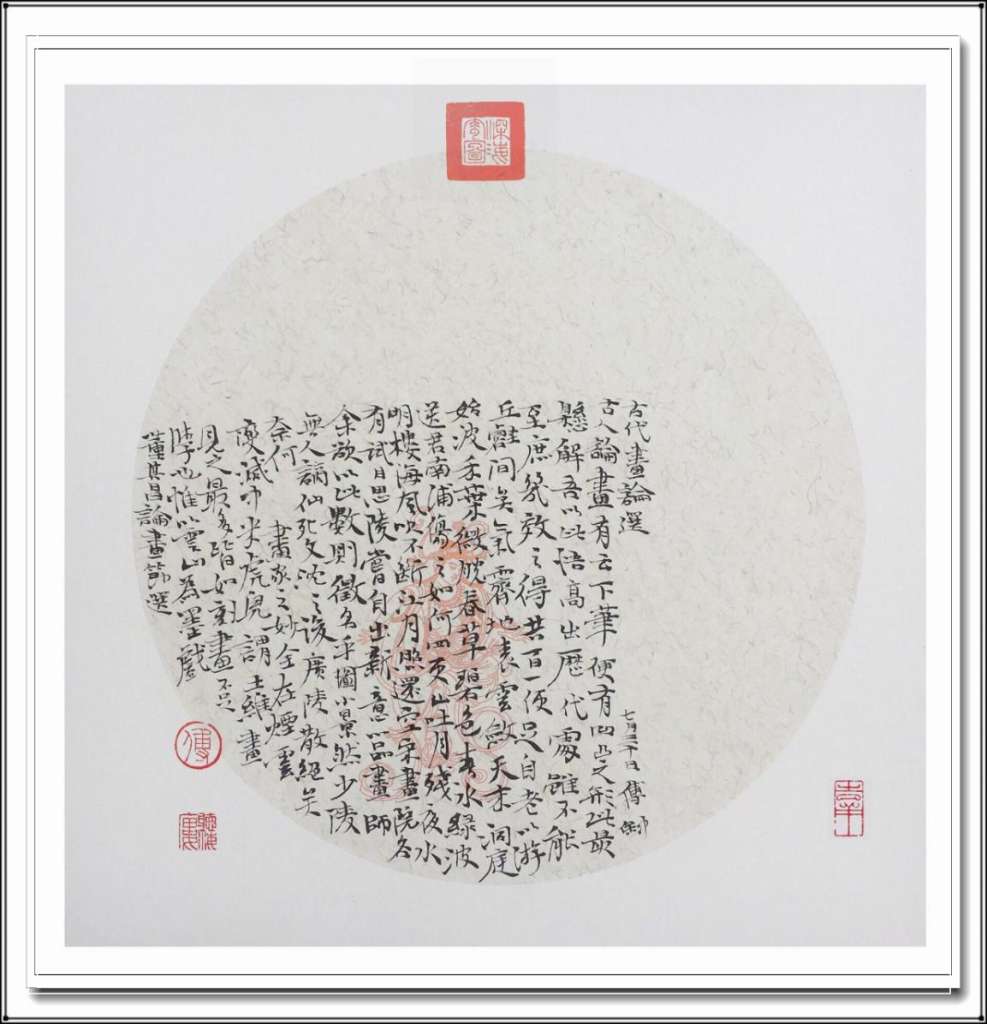 古代畫論選
七月二十日 傅
古人論畫有云下筆便有凹凸之形此最
懸解吾以此悟高出歷代處雖不能
至庶幾效之得其百一便足自老以游
丘壑間矣氣霽地表雲斂天末洞庭
始波木葉微脫春草碧色春水綠波
送君南浦傷之如何四更山吐月殘夜水
明樓海風吹不斷江月照還空宋畫院各
有試目思陵嘗自出新意以品畫師
余欲以此數則徵名手圖小景然少陵
無人謫仙死文沈之後廣陵散絕矣
奈何 畫家之妙全在煙雲
變滅中米虎兒謂王維畫
見之最多皆如刻畫不足
學也惟以雲山為墨戲
董其昌論畫節選
傅